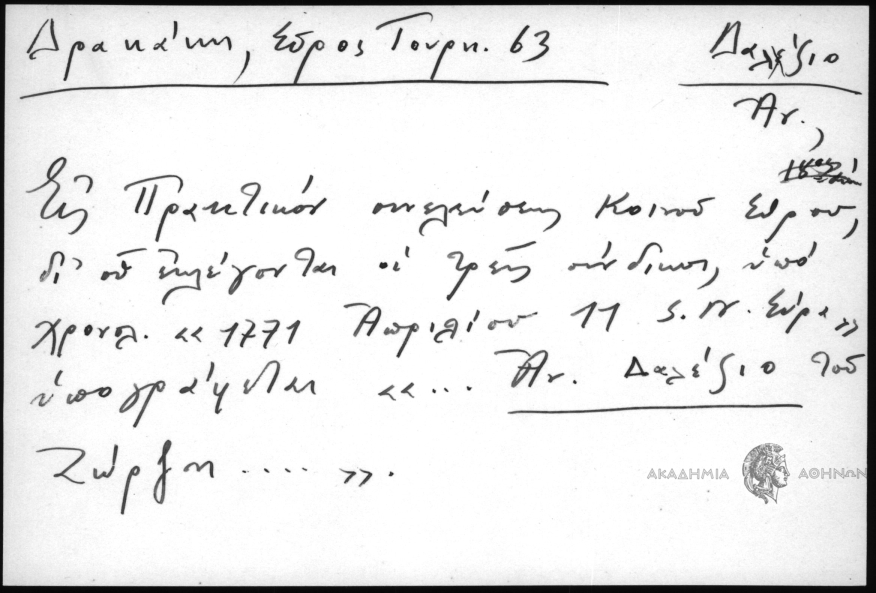 Δρακάκη, Σῦρος Τουρκ. 63
Δαλέζιο
Ἀν.,
Εἰς Πρακτικόν συνελεύσεως Κοινοῦ Σύρου,
δι' οὗ ἐκλέγονται οἱ τρεῖς σύνδικοι, ὑπό
χρονολ. «1771 Ἀπριλίου 11 S.N. Σύρα»
ὑπογράφεται «... Ἀν. Δαλέζιο τοῦ
Ζώρζη .... ».
ΑΚΑΔΗΜΙΑ ΑΘΗΝΩΝ